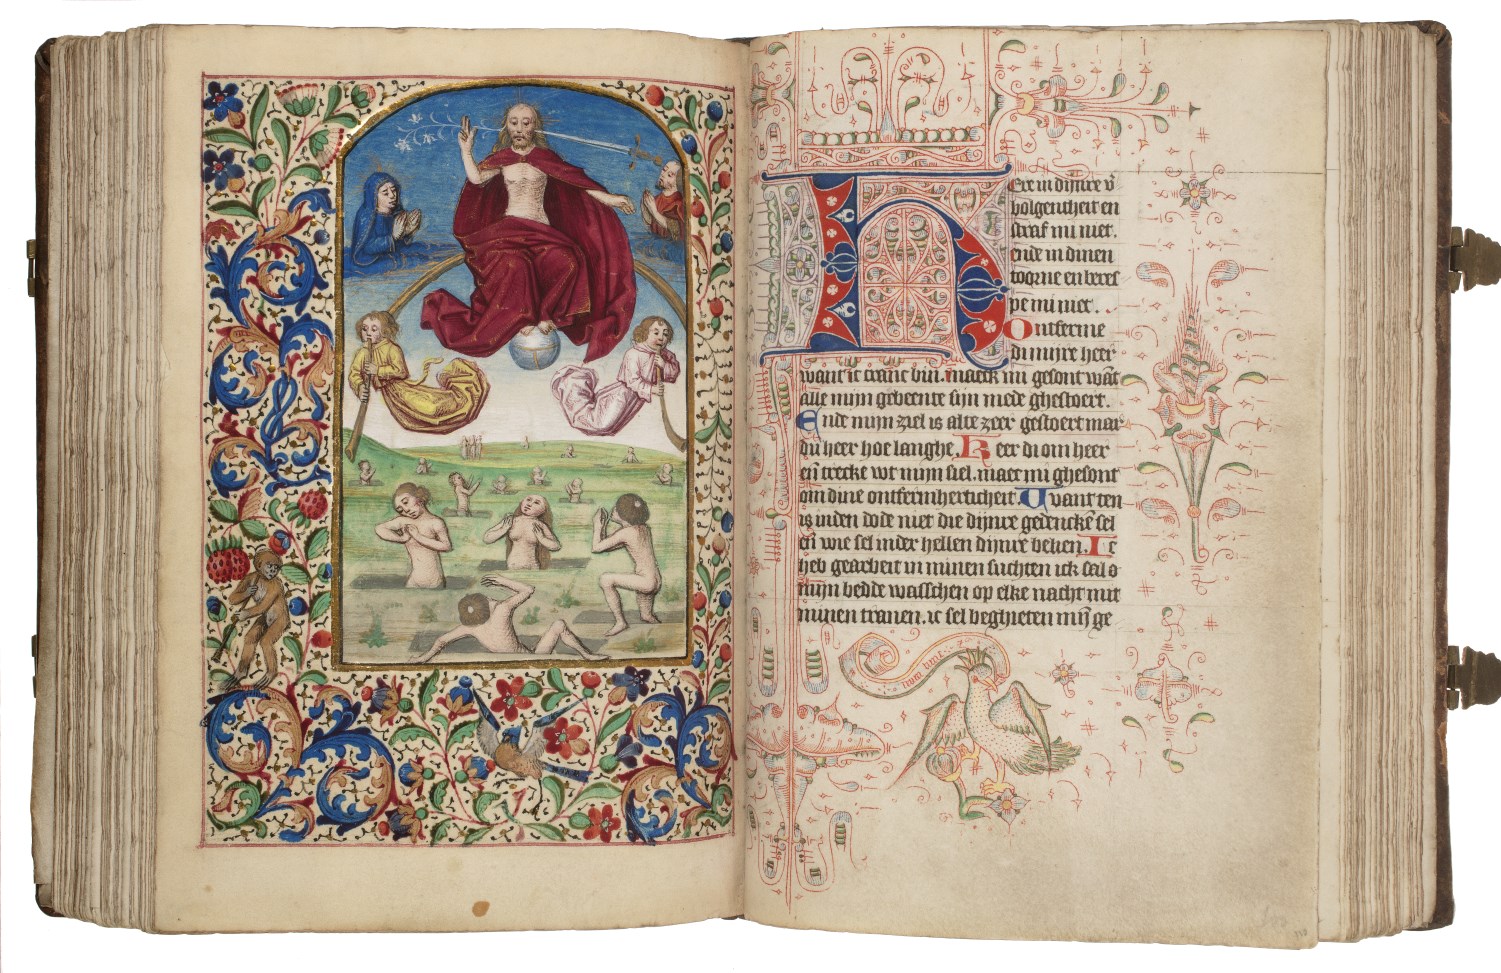 Ere in dijnre v̄
bolgentheit en
straf mi niet.
ende in dinen
toorne en beres
pe mi niet.
Ontferme
di mijre heer
want ic cranc bin. maeck mi gesont wāt
alle mijn gebeente sijn mede ghestoert.
Ende mijn ziel is alte zeer gestoert mar
du heer hoe langhe. Keer di om heer
eñ trecke wt mijn siel. maet mi ghesont
om dine ontfermherticheit Want ten
is inden dode niet die dijnre gedenckē sel
eñ wie sel inder hellen dijnre belien. Ic
heb gearbeit in minen suchten ick sal o
mijn bedde wasschen op elke nacht mit
minen tranen. ic sel beghieten mijn ge